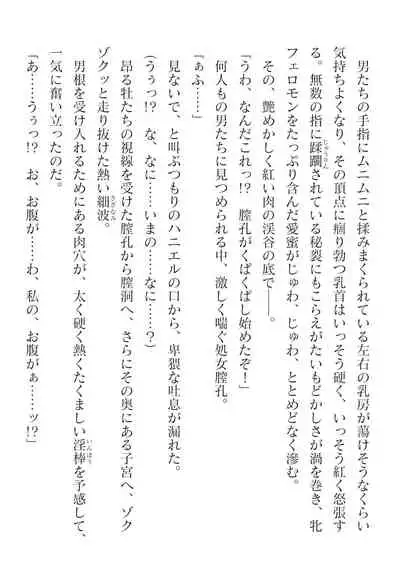 男たちの手指にムニムニと揉みまくられている左右の乳房が蕩けそうなくらい
気持ちよくなり、その頂点に痼り勃つ乳首はいっそう硬く、いっそう紅く怒張す
る。無数の指に蹂躙されている秘裂にもこらえがたいもどかしさが渦を巻き、牝
フェロモンをたっぷり含んだ愛蜜がじゅわ、じゅわ、ととめどなく滲む。
その、艶めかしく紅い肉の渓谷の底で――。
「うわ、なんだこれっ!?　膣孔がくぱくぱし始めたぞ！」
何人もの男たちに見つめられる中、激しく喘ぐ処女膣孔。
『ぁふ……』
見ないで、と叫ぶつもりのハニエルの口から、卑猥な吐息が漏れた。
（うぅっ!?　な、なに……いまの……なに……？）
昂る牡たちの視線を受けた膣孔から膣洞へ、さらにその奥にある子宮へ、ゾク
ゾクッと走り抜けた熱い細波。
男根を受け入れるためにある肉穴が、太く硬く熱くたくましい淫棒を予感して、
一気に奮い立ったのだ。
『あ……うぅっ!?　お、お腹が……わ、私の、お腹がぁ……ッ!?